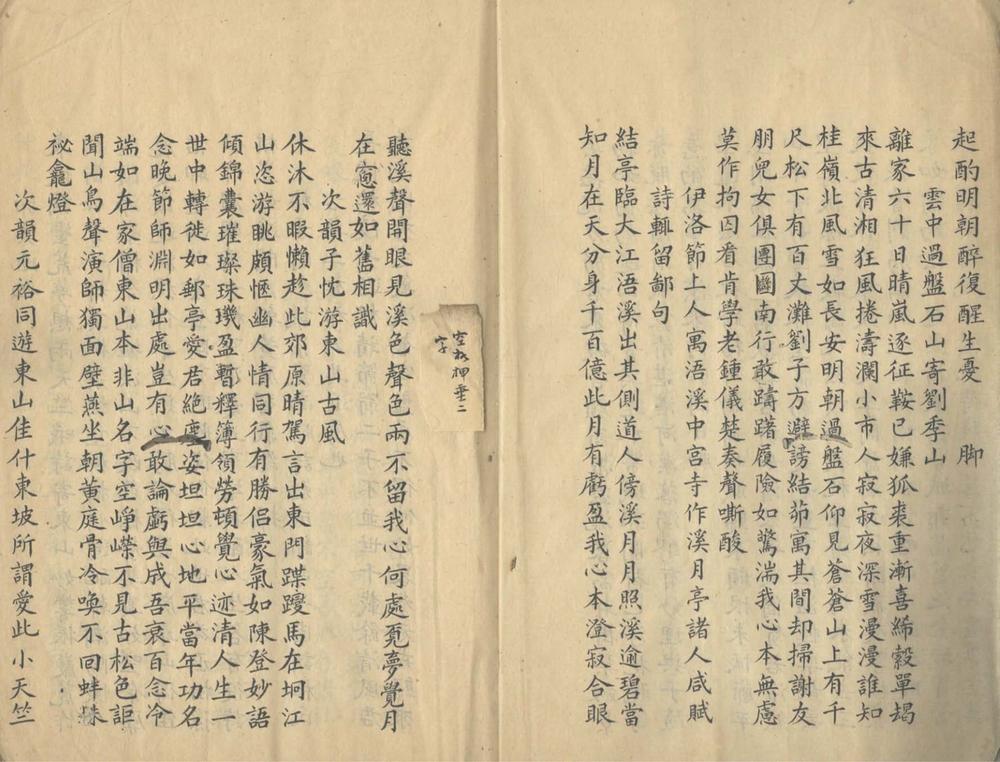 起酌明朝醉復醒生憂　脚
雲中過盤石山寄劉季山
離家六十日晴嵐逐征鞍已嫌狐裘重漸喜絺縠單朅
來古清湘狂風捲濤瀾小市人寂寂夜深雪漫漫誰知
桂嶺北風雪如長安明朝過盤石仰見蒼蒼山上有千
尺松下有百丈灘劉子方避謗結茆寓其間却掃謝友
朋兒女俱團圞南行敢躊躇履險如驚湍我心本無慮
莫作拘囚看肯學老鍾儀楚奏聲嘶酸
伊洛節上人寓浯溪中宮寺作溪月亭諸人咸賦
詩輒留鄙句
結亭臨大江浯溪出其側道人傍溪月月照溪逾碧當
知月在天分身千百億此月有虧盈我心本澄寂合眼
空格押垂二
字
聽溪聲開眼見溪色聲色兩不留我心何處覓夢覺月
在窻還如舊相識
次韻子忱游東山古風
休沐不暇懶趁此郊原晴駕言出東門蹀躞馬在坰江
山恣游眺頗愜幽人情同行有勝侶豪氣如陳登妙語
傾錦囊璀璨珠璣盈暫釋簿領勞頓覺心迹清人生一
世中轉徙如郵亭愛君絕塵姿坦坦心地平當年功名
念晚節師淵明出處豈有心敢論虧與成吾衰百念冷
端如在家僧東山本非山名字空崢嶸不見古松色詎
聞山鳥聲演師獨面壁燕坐朝黃庭骨冷喚不回蚌蛛
祕龕燈
次韻元裕同遊東山佳什東坡所謂愛此小天竺